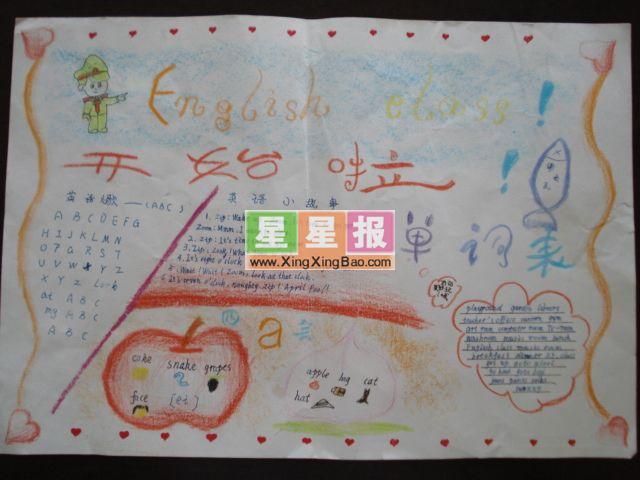 English class!
开始啦!
英语歌——(ABC)
A B C D E F G
H I J K L M N
O P Q R S T
U V W X Y Z
X Y Z Look
at A B C
My A B C
A B C
英语小故事
1. Zip: Wake
Zoom: Mmm. I
2. Zip: It's
3. Zip: Look! Wha
4. It's eight o'clock
5. Wait! Wait! Zoom, look at that clock.
6. It's seven o'clock, naughty Zip! April Fool!
星星报
www.XingXingBao.com
单词表
四 a 会
cake snake grapes
face [ei]
apple hog cat
hat
playground garden library
teacher's office canteen gym
art room computer room TV-room
washroom music room lunch
English class music room
breakfast dinner P.E. class
get up go to school
go home go to bed